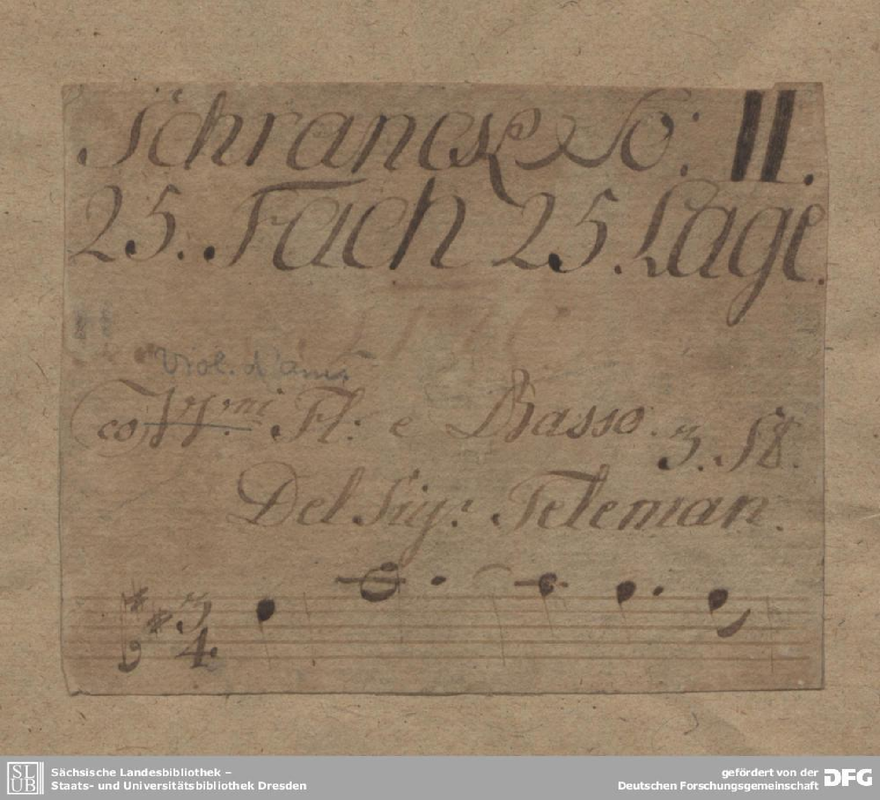 Schranck No: II.
25. Fach 25. Lage.
Viol. d'am.
co VV.ni Fl: e Basso. 3. St.
Del Sigr. Teleman.
3
4
SLUB
Sächsische Landesbibliothek –
Staats- und Universitätsbibliothek Dresden
gefördert von der
Deutschen Forschungsgemeinschaft
DFG